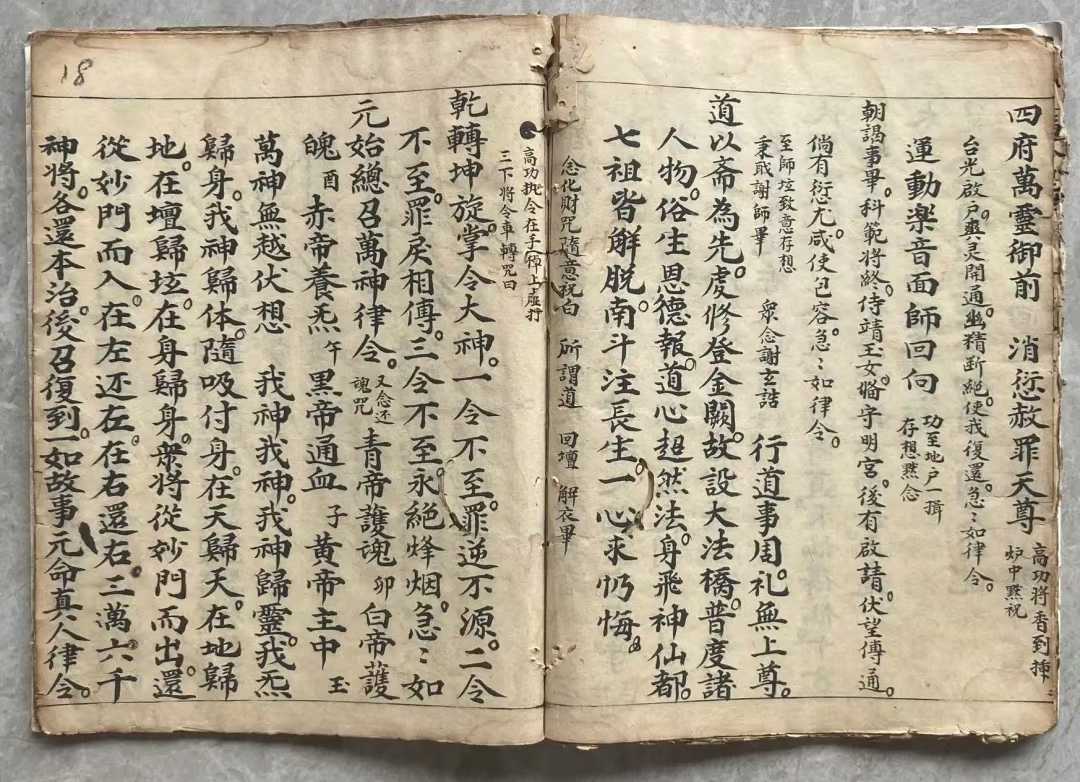 四府萬靈御前 消愆赦罪天尊 高功將香到插
炉中黙祝
台光啟戶。與灵開通。幽精斷絕。使我復還。急〻如律令。
運動樂音面師回向 功至地戶一揖
存想黙念
朝謁事畢。科範將終。侍靖玉女。守明宮。後有啟請。伏望傳通。
倘有愆尤。咸使包容。急〻如律令。
至師坛致意存想
秉職謝師畢 衆念謝玄誥 行道事周。礼無上尊。
道以斋為先。虔修登金闕。故設大法橋。普度諸
人物。俗生恩德報。道心超然法。身飛神仙都。
七祖皆解脱。南斗注長生。一心求忏悔。
念化財咒隨意祝白 所謂道 回壇 解衣畢
高功執令在手上虚打
三下將令車轉咒曰
乾轉坤旋。掌令大神。一令不至。罪逆不源。二令
不至。罪戾相傳。三令不至。永絕烽烟。急〻如
元始總召萬神律令。又念还
魂咒 青帝護魂 卯 白帝護
魄 酉 赤帝養炁 午 黑帝通血 子 黃帝主中 玉
萬神無越伏想 我神我神。我神歸靈。我炁
歸身。我神歸体。隨吸付身。在天歸天。在地歸
地。在壇歸坛。在身歸身。衆將從妙門而出。還
從妙門而入。在左还左。在右還右。三萬六千
神將。各還本治。後召復到。一如故事。元命真人律令。
18